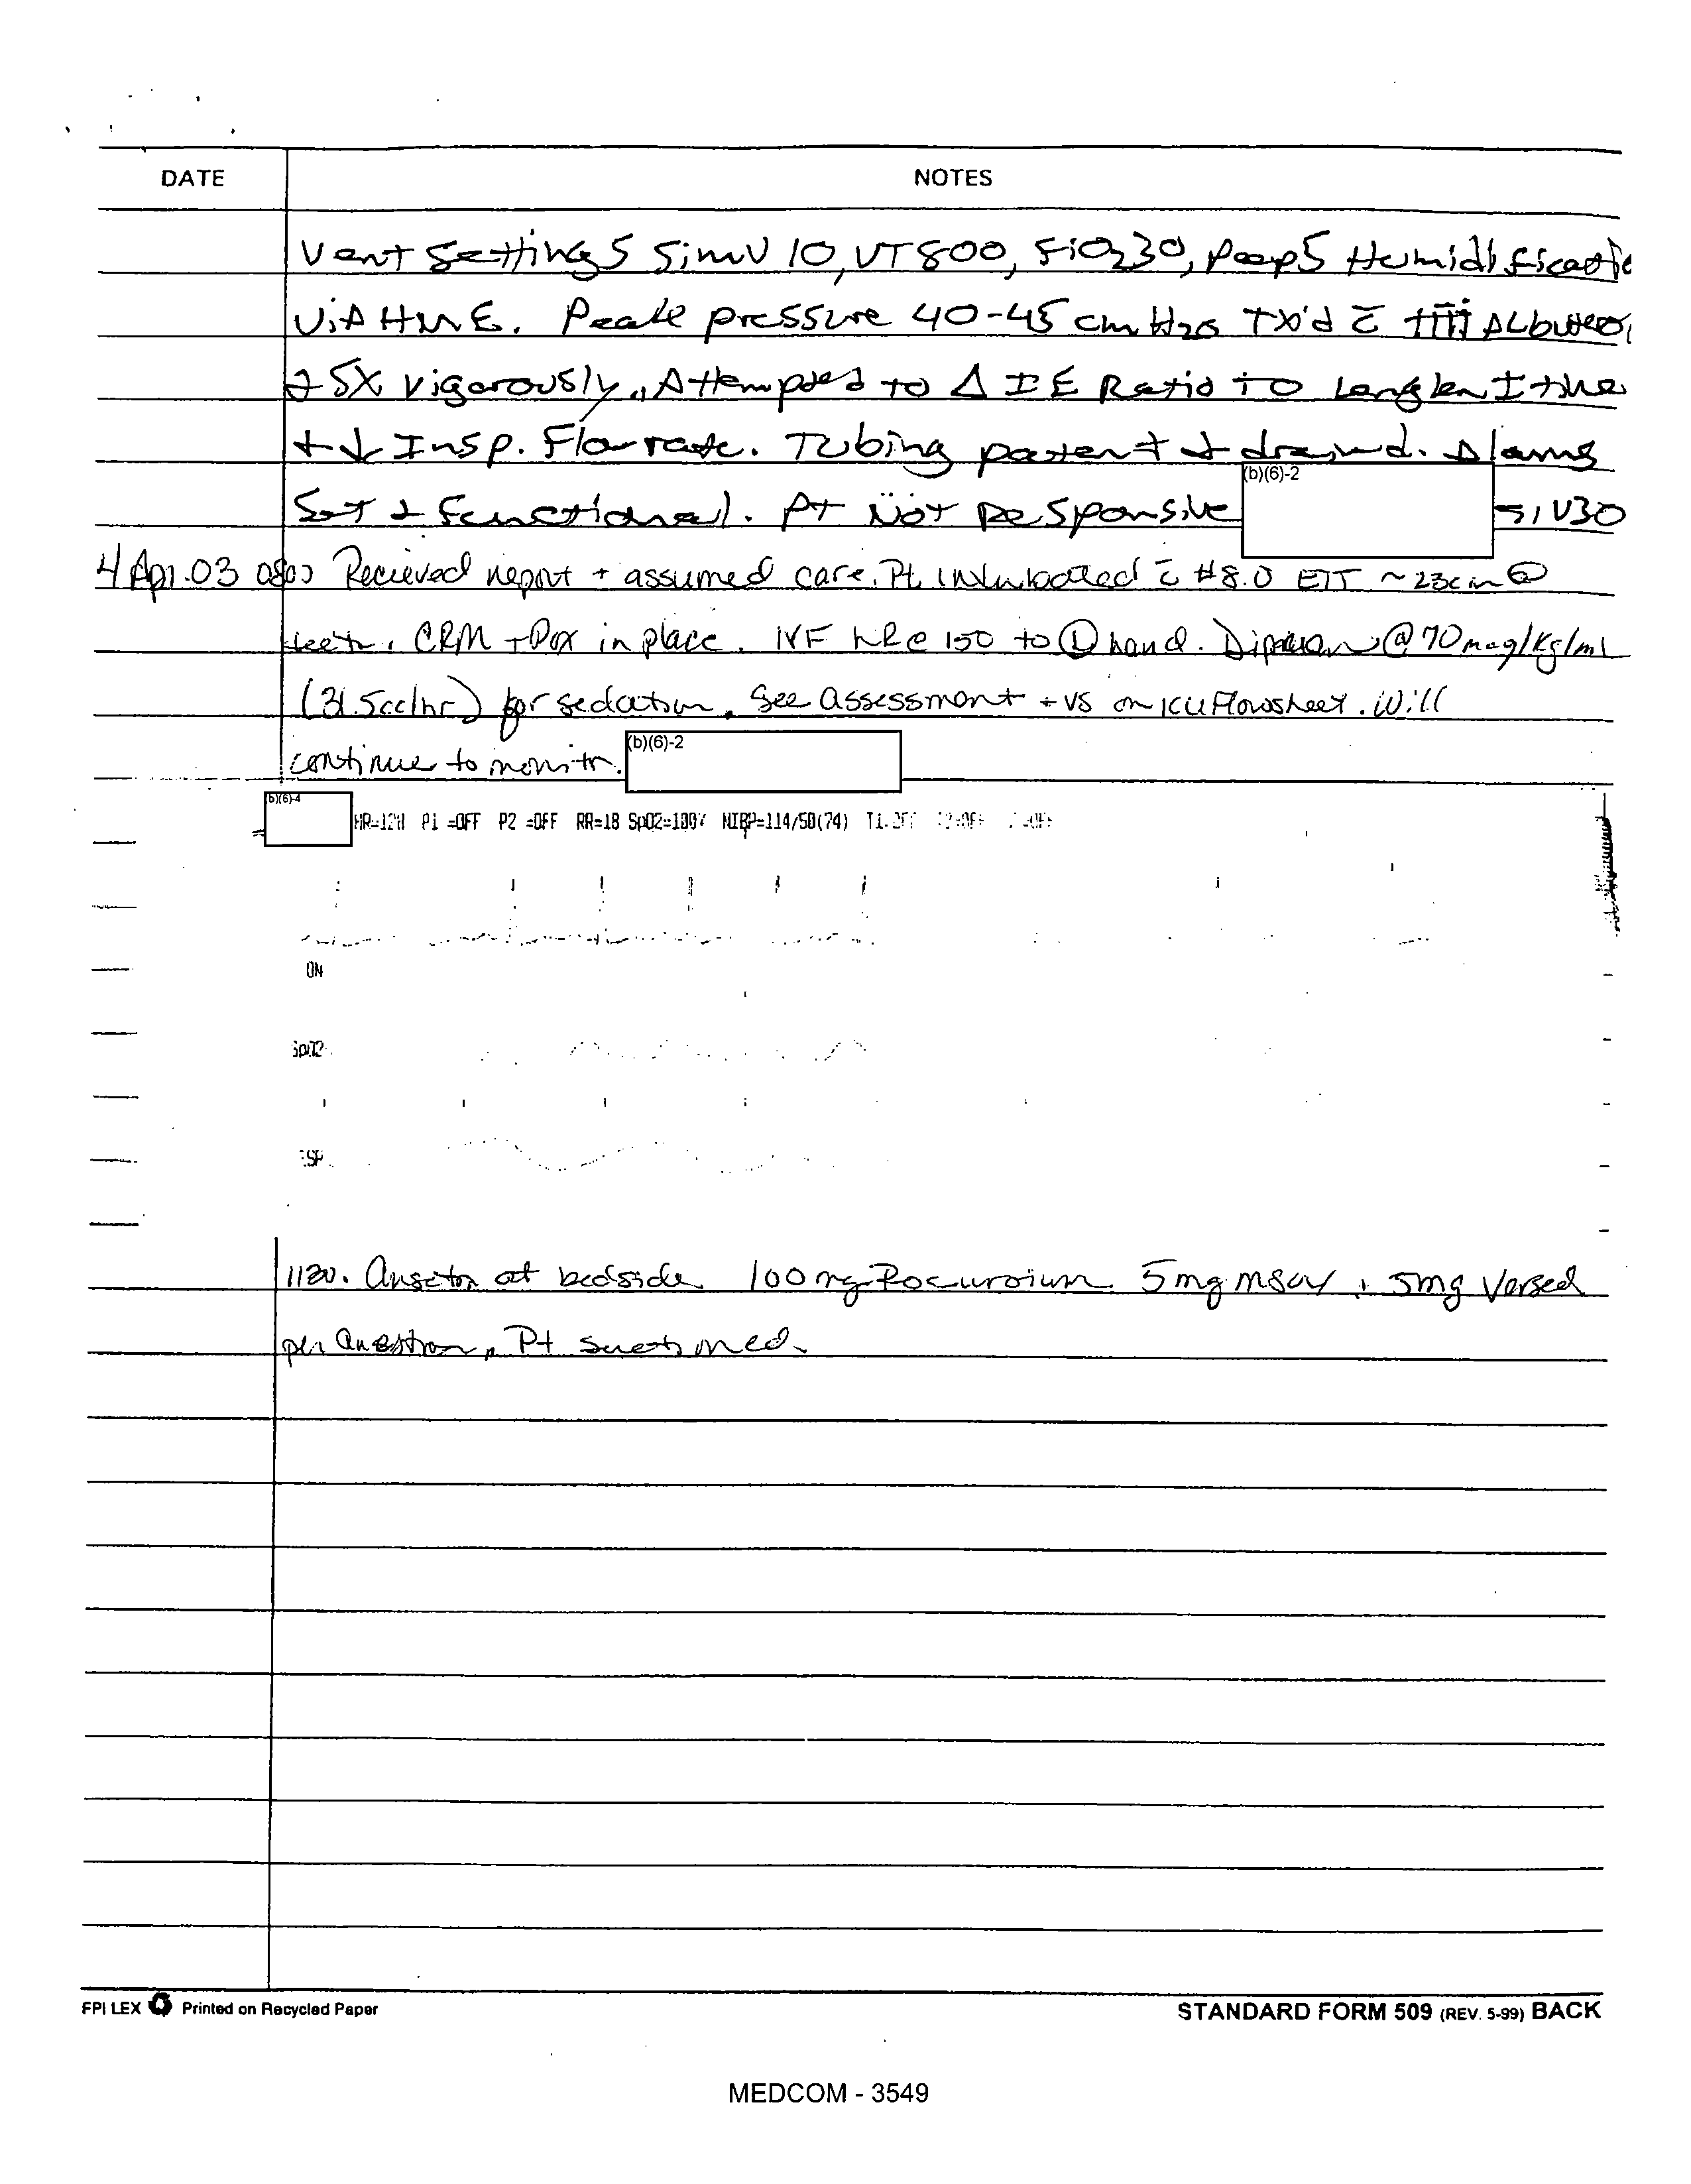 DATE NOTES
Vent Settings Simv 10, VT 800, FiO2 30, Peep 5 Humidificatio
ViA HME. Peak pressure 40-45 cm H2O TX'd c̄ Albuterol
SX vigorously, Attempted to Δ I E Ratio to Lengthen I time
+ ↓ Insp. Flow rate. Tubing patent + drained. Alarms
(b)(6)-2
Set & Functional. Pt Not Responsive
4 Apr. 03 0800 Recieved report + assumed care. Pt. intubated c̄ #8.0 ETT ~23cm @
teeth. CRM + Pox in place. IVF @ 150 to Ⓛ hand. Diprivan @ 70 mcg/kg/mL
(31.5cc/hr) for sedation. See assessment + VS on ICU Flowsheet. Will
continue to monitr. (b)(6)-2
(b)(6)-4
P1 =OFF P2 =OFF RR=18 SpO2=100% NIBP=114/50(74)
ON
SpO2
1120. at bedside 100 mg Rocuronium 5mg MSO4 + 5mg Versed
per Pt suctioned.
FPI LEX Printed on Recycled Paper
STANDARD FORM 509 (REV. 5-99) BACK
MEDCOM - 3549